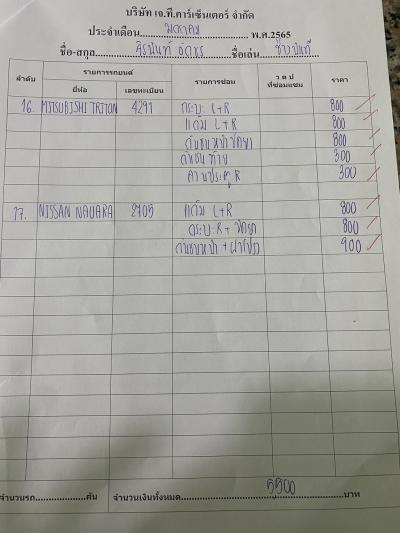 บริษัท เจ.ที.คาร์เซ็นเตอร์ จำกัด
ประจำเดือน มกราคม พ.ศ.2565
ชื่อ-สกุล ชื่อเล่น
ลำดับ รายการรถยนต์ รายการซ่อม ว ด ป ที่ซ่อมแซม ราคา
ยี่ห้อ เลขทะเบียน
16. MITSUBISHI TRITON 4291 กระบะ L+R 800
แก้ม L+R 800
กันชนหน้า 800
กันชนท้าย 300
คานประตู R 300
17. NISSAN NAVARA 2705 แก้ม L+R 800
กระบะ R + 800
กันชนหน้า + ฝาโปรง 900
จำนวนรถ คัน จำนวนเงินทั้งหมด 5500 บาท